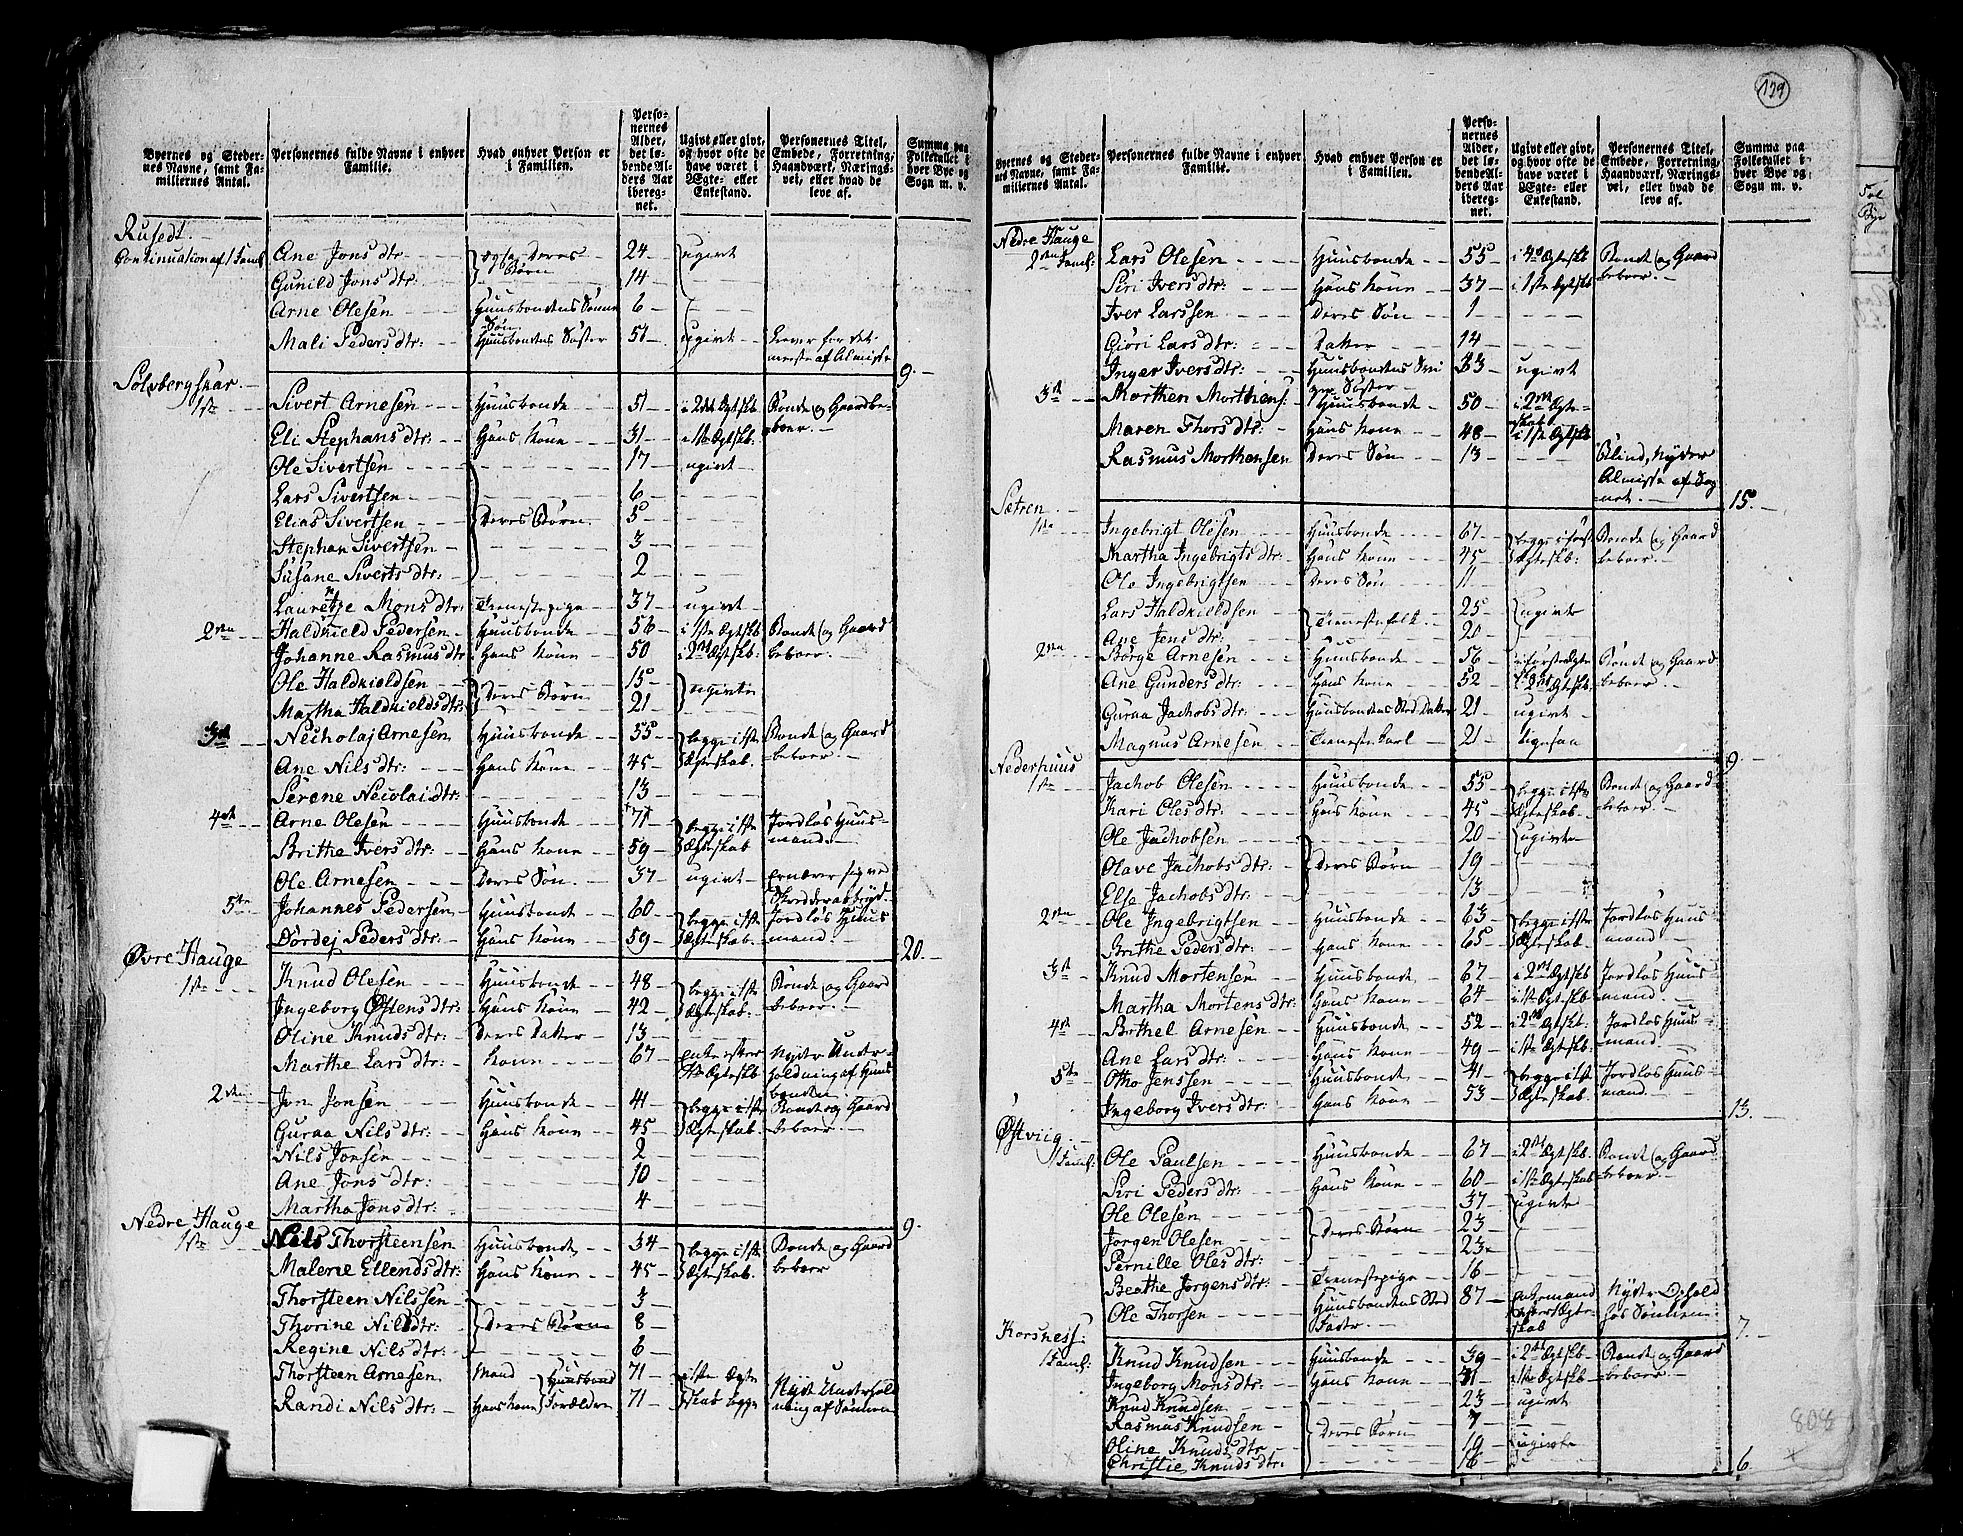 129
Byernes og Stedernes Navne, samt Familiernes Antal. | Personernes fulde Navne i enhver Familie. | Hvad enhver Person er i Familien. | Personernes Alder, det løbende Alders Aar iberegnet. | Ugivt eller givt, og hvor ofte de have været i Ægte- eller Enkestand. | Personernes Titel, Embede, Forretning, Haandværk, Næringsvei, eller hvad de leve af. | Summa paa Folketallet i hver Bye og Sogn m. v.
Rusedt
Continuation af 1 Famil | Ane Jons dtr | og saa Deres Børn | 24 | ugivt
Gunild Jons dtr: | 14
Arne Olesen | Huusbondens Sønne Søn | 6
Mali Peders dtr: | Huusbondens Søster | 51 | ugivt | Lever for det meeste af Almisse | 9.
Sølvbergskar.
1ste | Sivert Arnesen | Huusbonde | 51 | i 2det Egtskb | Bonde og Gaardbeboer.
Eli Stephans dtr: | Hans Kone | 31 | i 1ste Egtskb.
Ole Sivertsen | 17 | ugivt
Lars Sivertsen | 6
Elias Sivertsen | Deres Børn | 5
Stephan Sivertsen | 3
Susane Siverts dtr: | 2
Lauretze Mons dtr: | Tienestepige | 37 | ugivt
2den | Haldkield Pedersen | Huusbonde | 56 | i 1ste Egtskb | Bonde og Gaard
Johanne Rasmus dtr | Hans Kone | 50 | i 2det Egtskb: | beboer.
Ole Haldkieldsen | Deres Børn | 15 | ugivte
Martha Haldkields dtr: | 21
3die | Necholaj Arnesen | Huusbonde | 55 | begge i 1ste | Bonde og Gaard
Ane Nils dtr: | Hans Kone | 45 | Egteskab. | beboer.
Serene Necolai dtr: | 13
4de | Arne Olesen | Huusbonde | 71 | begge i 1ste | Jordløs Huus-
Brithe Ivers dtr: | Hans Kone | 59 | Egteskab | mand.
Ole Arnesen | Deres Søn | 37 | ugivt | ernærer sig ved Skrædderarbeyd.
5te | Johannes Pedersen | Huusbonde | 60 | begge i 1ste | Jordløs Huus
Dørdej Peders dtr: | Hans Kone | 59 | Egteskab. | mand. | 20.
Øvre Hauge
1ste | Knud Olesen | Huusbonde | 48 | begge i 1ste | Bonde og Gaard
Ingeborg Østens dtr: | Hans Kone | 42 | Egteskab. | beboer.
Oline Knuds dtr: | Deres Datter | 13
Marthe Lars dtr: | Kone | 67 | Enke efter 1ste Egteskb | Nyder Underholdning af Huusbonden
2den | Jon Jonsen | Huusbonde | 41 | begge i 1ste | Bonde og Gaard
Guraa Nils dtr: | Hans Kone | 45 | Egteskab. | beboer.
Nils Jonsen | 2
Ane Jons dtr: | 10
Martha Jons dtr: | 4 | 9.
Nedre Hauge
1ste | Nils Thorsteensen | Huusbonde | 34 | begge i 1ste | Bonde og Gaard
Malene Ellends dtr: | Hans Kone | 45 | Egteskab. | beboer
Thorsteen Nilssen | 3
Thorine Nils dtr: | Deres Børn | 8
Regine Nils dtr: | 6
Thorsteen Arnesen | Mand | Huusbond | 71 | i 1ste Egte
Randi Nils dtr: | Hans Kone | Forældre | 71 | skab begge | Nyder Underholdning af Sønnen
Byernes og Stedernes Navne, samt Familiernes Antal. | Personernes fulde Navne i enhver Familie. | Hvad enhver Person er i Familien. | Personernes Alder, det løbende Alders Aar iberegnet. | Ugivt eller givt, og hvor ofte de have været i Ægte- eller Enkestand. | Personernes Titel, Embede, Forretning, Haandværk, Næringsvei, eller hvad de leve af. | Summa paa Folketallet i hver Bye og Sogn m. v.
Nedre Hauge
2den Famil: | Lars Olesen | Huusbonde | 55 | i 4de Egteskb | Bonde og Gaard
Siri Ivers dtr: | Hans Kone | 37 | i 1ste Egtskb | beboer.
Iver Larssen | Deres Søn | 1
Giöri Lars dtr: | Datter | 14
Inger Ivers dtr: | Huusbondens Svigger Søster | 33 | ugivt
3die | Morthen Morthens: | Huusbonde | 50 | i 2det Egteskab
Maren Thors dtr: | Hans Kone | 48 | i 1ste Egtskb
Rasmus Morthensen | Deres Søn | 13 | Blind, Nyder Almisse af Sognet. | 15.
Sætren
1ste | Ingebrigt Olesen | Huusbonde | 67 | begge i først | Bonde og Gaard
Martha Ingebrigts dtr: | Hans Kone | 45 | Egteskb: | beboer.
Ole Ingebrigtsen | Deres Søn | 11
Lars Haldkieldsen | Tienestefolk | 25 | ugivte
Ane Jens dtr: | 20
2den | Børge Arnesen | Huusbonde | 56 | i første Egte | Bonde og Gaard
Ane Gunders dtr: | Hans Kone | 52 | i 2det Egtskb. | beboer.
Guraa Jachobs dtr: | Huusbondens Sted Datter | 21 | ugivt
Magnus Arnesen | Tieneste Karl | 21 | ligesaa | 9.
Nederhuus
1ste | Jachob Olesen | Huusbonde | 55 | begge i 1ste | Bonde og Gaard
Kari Oles dtr: | Hans Kone | 45 | Egteskab. | beboer
Ole Jachobsen | 20 | ugivte
Olave Jachobs dtr: | Deres Børn | 19
Else Jachobs dtr: | 13
2den | Ole Ingebrigtsen | Huusbonde | 63 | begge i 1ste | Jordløs Huus
Brithe Peders dtr: | Hans Kone | 65 | Egteskab. | mand.
3die | Knud Mortensen | Huusbonde | 67 | i 2det Egtskb | Jordløs Huus
Martha Mortens dtr: | Hans Kone | 64 | i 1ste Egtskb. | mand.
4de | Berthel Arnesen | Huusbonde | 52 | i 2det Egtskb: | Jordløs Huus
Ane Lars dtr: | Hans Kone | 49 | i 1ste Egtskb. | mand.
5te | Otho Jenssen | Huusbonde | 41 | begge i 1ste | Jordløs Huus
Ingeborg Ivers dtr: | Hans Kone | 53 | Egteskab. | mand. | 13.
Østviig
1 Famil: | Ole Paulsen | Huusbonde | 67 | i 2det Egtskb. | Bonde og Gaard
Siri Peders dtr: | Hans Kone | 60 | i 1ste Egteskab | beboer.
Ole Olesen | 37 | ugivte
Jørgen Olesen | Deres Børn | 23
Pernille Oles dtr: | 23
Beathe Jørgens dtr: | Tienestepige | 16
Ole Thorsen | Huusbondens Sted Fader | 87 | Enkemand efter 1ste Egteskab | Nyder Ophold hos Sønnen | 7.
Korsness:
1 Famil: | Knud Knudsen | Huusbonde | 39 | i 2det Egtskb | Bonde og Gaard
Ingeborg Mons dtr: | Hans Kone | 31 | i 1ste Egteskb | beboer.
Knud Knudsen | 23 | ugivt
Rasmus Knudsen | Deres Børn | 7
Oline Knuds dtr | 19 | ugivte
Christie Knuds dtr: | 16 | 6.
808